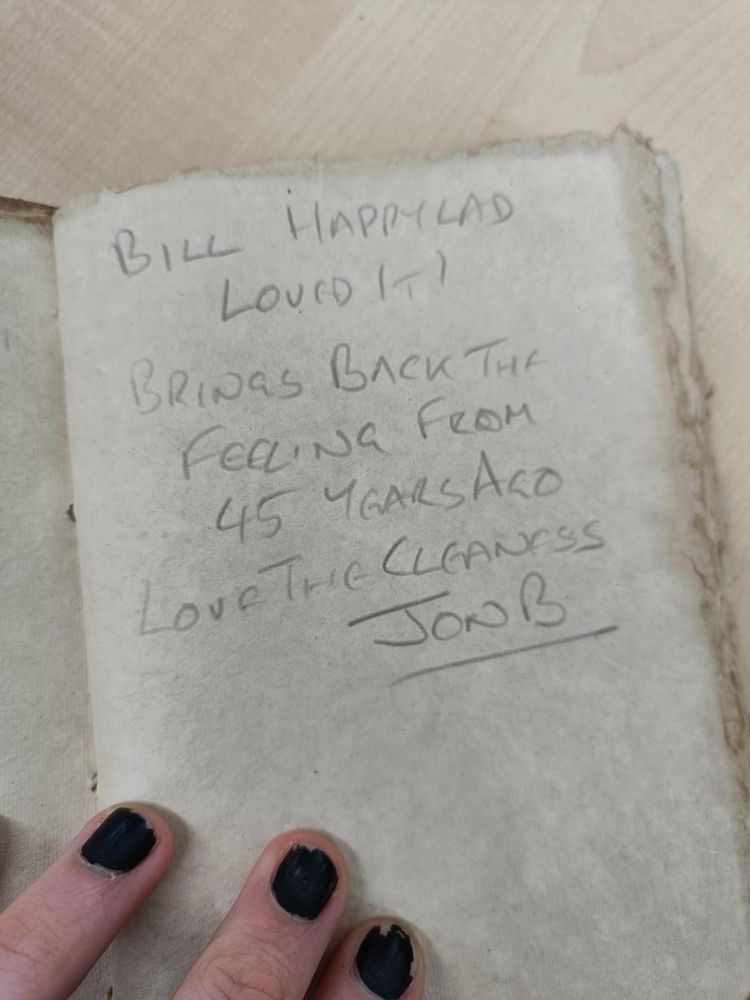 BILL HAPPYLAD
LOVED IT!
BRINGS BACK THE
FEELING FROM
45 YEARS AGO
LOVE THE CLEANESS
JON B